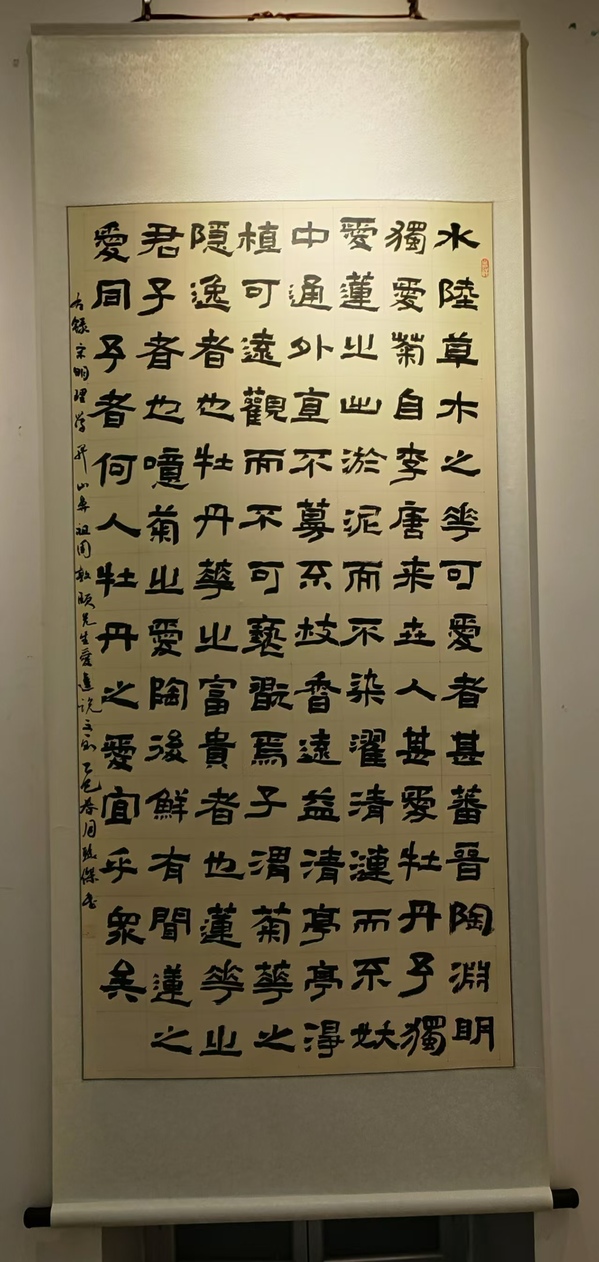 水陸草木之華可愛者甚蕃晉陶淵明
獨愛菊自李唐来世人甚愛牡丹予獨
愛蓮之出淤泥而不染濯清漣而不妖
中通外直不蔓不枝香遠益清亭亭淨
植可遠觀而不可褻翫焉子渭菊華之
隱逸者也牡丹華之富貴者也蓮華之
君子者也噫菊之愛陶後鮮有聞蓮之
愛同予者何人牡丹之愛宜乎衆矣
右録宋明理學開山鼻祖周敦頤先生愛蓮说文 乙巳春周傑書